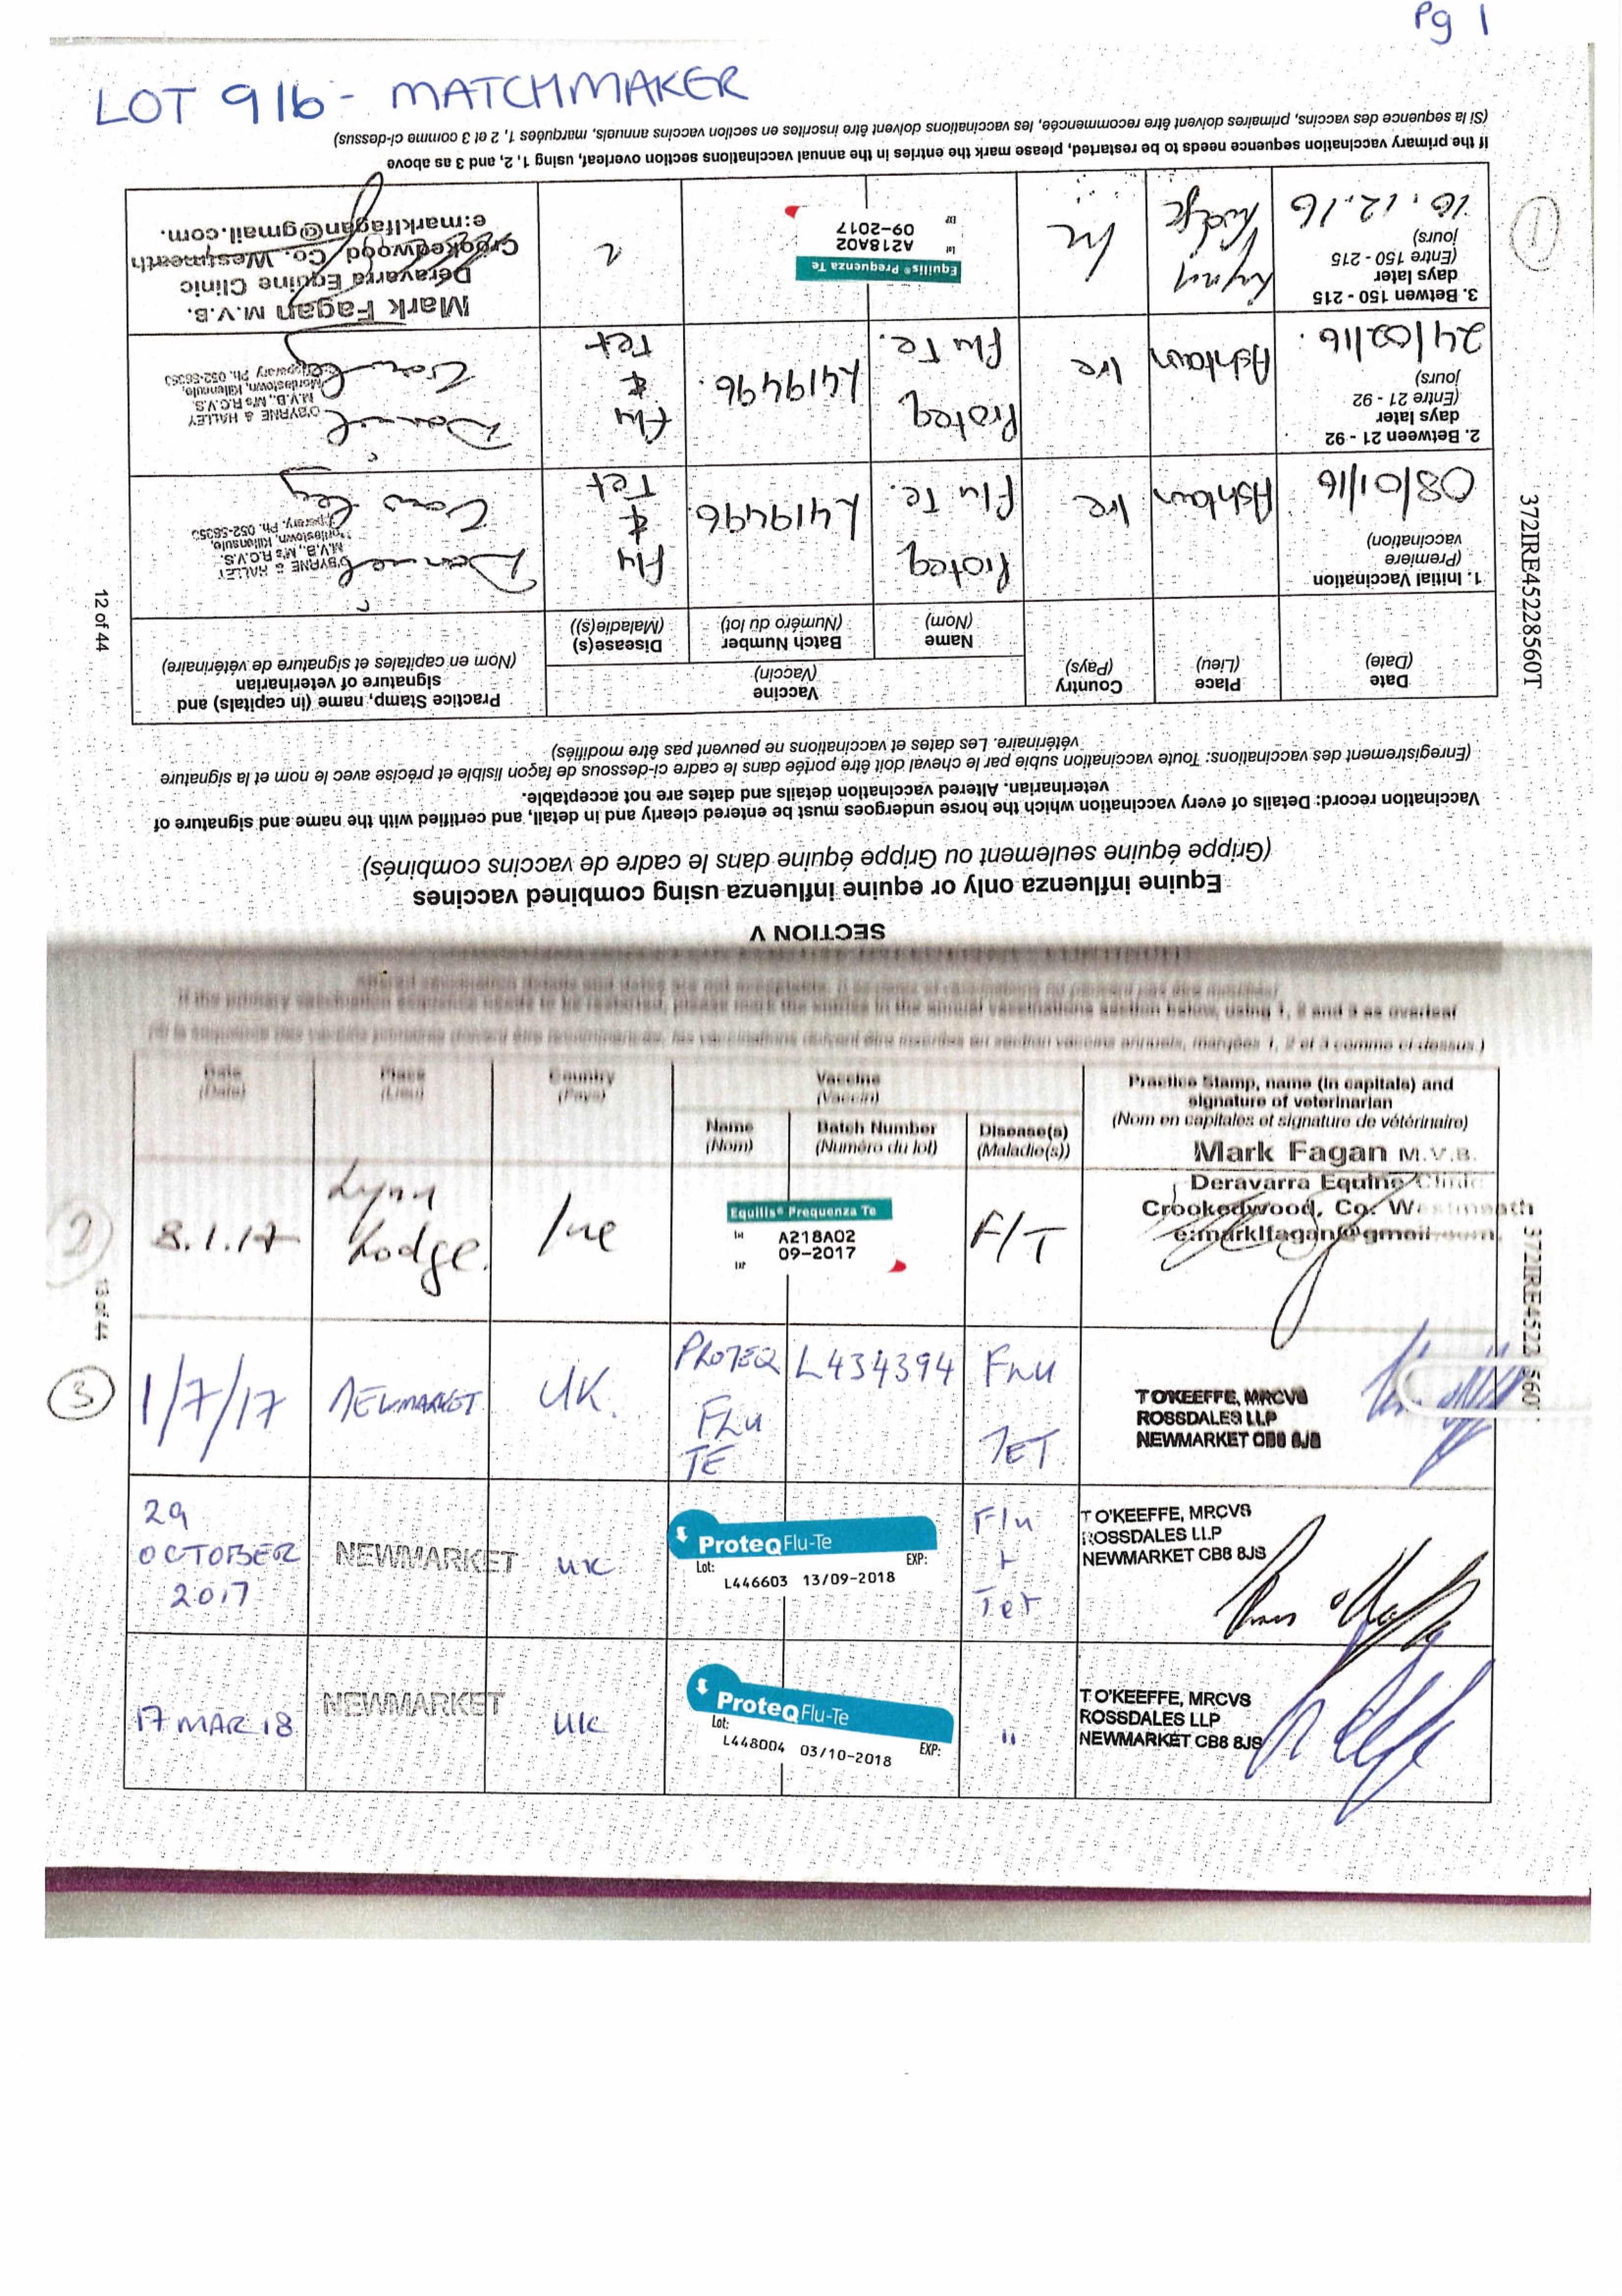 Pg 1
LOT 916 - MATCHMAKER
SECTION V
Equine influenza only or equine influenza using combined vaccines
(Grippe équine seulement ou Grippe équine dans le cadre de vaccins combinés)
Vaccination record: Details of every vaccination which the horse undergoes must be entered clearly and in detail, and certified with the name and signature of
veterinarian. Altered vaccination details and dates are not acceptable.
(Enregistrement des vaccinations: Toute vaccination subie par le cheval doit être portée dans le cadre ci-dessous de façon lisible et précise avec le nom et la signature
vétérinaire. Les dates et vaccinations ne peuvent pas être modifiés)
Date
(Date)
Place
(Lieu)
Country
(Pays)
Vaccine
(Vaccin)
Name
(Nom)
Batch Number
(Numéro du lot)
Disease(s)
(Maladie(s))
Practice Stamp, name (in capitals) and
signature of veterinarian
(Nom en capitales et signature de vétérinaire)
1. Initial Vaccination
(Première
vaccination)
08/01/16
Ashtown
Ire
Proteq
Flu Te.
L419496
Flu
&
Tet
O'BYRNE & HALLEY
M.V.B., M's R.C.V.S.
Killenaule,
Tipperary, Ph. 052-56353
2. Between 21 - 92
days later
(Entre 21 - 92
jours)
24/02/16.
Ashtown
Ire
Proteq
Flu Te.
L419496.
Flu
&
Tet
O'BYRNE & HALLEY
M.V.B., M's R.C.V.S.
Killenaule,
Tipperary Ph. 052-56353
3. Betwen 150 - 215
days later
(Entre 150 - 215
jours)
10.12.16
Lynn
Lodge
Ire
Equilis® Prequenza Te
Lot
A218A02
09-2017
EXP
Mark Fagan M.V.B.
Deravarra Equine Clinic
Crookedwood, Co. Westmeath
e:marklfagan@gmail.com.
1
If the primary vaccination sequence needs to be restarted, please mark the entries in the annual vaccinations section overleaf, using 1, 2, and 3 as above
(Si la sequence des vaccins, primaires doivent être recommencée, les vaccinations doivent être inscrites en section vaccins annuels, marquées 1, 2 et 3 comme ci-dessus)
372IRE45228560T
12 of 44
If the primary vaccination sequence needs to be restarted, please mark the entries in the annual vaccinations section below, using 1, 2 and 3 as overleaf
Date
(Date)
Place
(Lieu)
Country
(Pays)
Vaccine
(Vaccin)
Name
(Nom)
Batch Number
(Numéro du lot)
Disease(s)
(Maladie(s))
Practice Stamp, name (in capitals) and
signature of veterinarian
(Nom en capitales et signature de vétérinaire)
2
8.1.17
Lynn
Lodge.
Ire
Equilis® Prequenza Te
Lot
A218A02
09-2017
EXP
F/T
Mark Fagan M.V.B.
Deravarra Equine Clinic
Crookedwood, Co. Westmeath
e:marklfagan@gmail.com.
3
1/7/17
NEWMARKET
UK.
PROTEQ
FLU
TE
L434394
FLU
TET
T O'KEEFFE, MRCVS
ROSSDALES LLP
NEWMARKET CB8 8JS
29
OCTOBER
2017
NEWMARKET
UK
ProteqFlu-Te
Lot:
EXP:
L446603 13/09-2018
Flu
+
Tet
T O'KEEFFE, MRCVS
ROSSDALES LLP
NEWMARKET CB8 8JS
17 MAR 18
NEWMARKET
UK
ProteqFlu-Te
Lot:
EXP:
L448004 03/10-2018
"
T O'KEEFFE, MRCVS
ROSSDALES LLP
NEWMARKET CB8 8JS
13 of 44